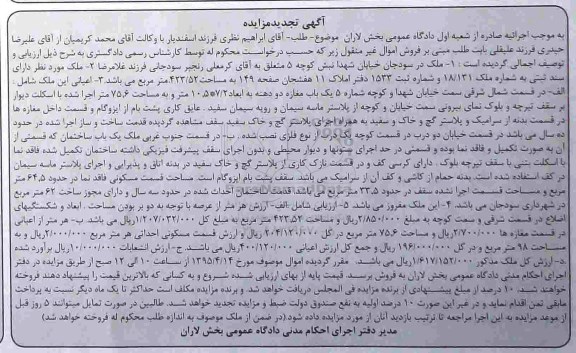 آگهی تجدیدمزایده
به موجب اجرائیه صادره از شعبه اول دادگاه عمومی بخش لاران موضوع- طلب- آقای ابراهیم نظری فرزند اسفندیار با وکالت آقای محمد کریمیان از آقای علیرضا
حیدری فرزند علیقلی بابت طلب مبنی بر فروش اموال غیر منقول زیر که حسب درخواست محکوم له توسط کارشناس رسمی دادگستری به شرح ذیل ارزیابی و
توصیف اجمالی گردیده است : ۱- ملک در سودجان خیابان شهدا نبش کوچه ۵ متعلق به آقای کرمعلی رنجبر سودجانی فرزند غلامرضا ۲- ملک مورد نظر دارای
سند ثبتی به شماره ملک ۱۸/۱۳۱ و شماره ثبت ۱۵۳۳ دفتر املاک ۱۱ هفتجان صفحه ۱۴۹ به مساحت ۴۲۳/۵۲ متر مربع می باشد ۳- اعیانی این ملک شامل
الف- در قسمت شمال شرقی سمت خیابان شهدا و کوچه شماره ۵ یک باب مغازه دو دهنه به ابعاد ۷×۱۰,۵ متر و به مساحت ۷۵,۶ متر اجرا شده با اسکلت دیوار
بر سقف تیرچه و بلوک نمای بیرونی سمت خیابان و کوچه از پلاستر ماسه سیمان و رویه سیمان سفید . عایق کاری پشت بام از ایزوگام و قسمت داخل مغازه ها
در قسمت بدنه از سرامیک و پلاستر گچ و خاک و سفید به همراه اجرای پلاستر گچ و خاک سفید سقف مشاهده گردیده قدمت ساخت و ساز اجرا شده در حدود
ده سال می باشد در قسمت خیابان دو درب در قسمت کوچه یک درب از نوع فلزی نصب شده . ب- در قسمت جنوب غربی ملک یک باب ساختمان که قسمتی از
آن به صورت تکمیل و فاقد نما بوده و قسمتی در حد اجرای ستونها و دیوار محیطی و بدون اجرای سقف پیشرفت فیزیکی داشته ساختمان تکمیل شده فاقد نما
با اسکلت بتنی با سقف تیرچه بلوک . دارای کرسی کف و در قسمت نازک کاری از پلاستر گچ و خاک سفید در بدنه اتاق و پذیرایی و اجرای پلاستر ماسه سیمان
در کف استفاده شده است. بدنه حمام از کاشی و کف آن از سرامیک می باشد سقف پشت بام ایزوگام است. مساحت قسمت مسکونی فاقد نما در حدود ۶۴,۵ متر
مربع و مساحت قسمت اجرا نشده سقف در حدود ۳۳,۵ متر مربع می باشد قدمت ساختمان احداث شده در حدود سه سال و دارای مجوز ساخت ۶۲ متر مربع
در شهرداری سودجان می باشد. ۴- این ملک مفروز می باشد. ۵- ارزیابی شامل -الف- ارزش هر متر از عرصه با توجه به دو بر بودن مساحت . ابعاد و شکستگیهای
اضلاع در قسمت شرقی و سمت کوچه به مبلغ ۲/۸۵۰/۰۰۰ریال و مساحت ۴۲۳,۵۲ متر مربع به مبلغ کل ۱/۲۰۷/۰۳۲/۰۰۰ریال می باشد. ب- هر متر از اعیانی
در قسمت مغازه ها ۲/۷۰۰/۰۰۰ ریال و مساحت ۷۵,۶ متر مربع در کل ۲۰۴/۱۲۰/۰۰۰ ریال و ارزش قسمت مسکونی احداثی هر متر مربع ۲/۰۰۰/۰۰۰ریال و به
مساحت ۹۸ متر مربع و در کل ۱۹۶/۰۰۰/۰۰۰ ریال و جمع کل ارزش اعیانی ۴۰۰/۱۲۰/۰۰۰ریال می باشد. ج- ارزش انشعابات ۱۰/۰۰۰/۰۰۰ریال برآورد شده
د- ارزش کل ملک مذکور ۱/۶۱۷/۱۵۲/۰۰۰ریال می باشد. مقرر گردیده اموال موصوف مورخ ۱۳۹۵/۴/۱۴ از ساعت ۱۰ الی ۱۲ صبح از طریق مزایده در دفتر
اجرای احکام مدنی دادگاه عمومی بخش لاران به فروش برسد. قیمت پایه از بهای ارزیابی شده شروع و به کسانی که بالاترین قیمت را پیشنهاد دهند فروخته
خواهند شد. ۱۰ درصد از مبلغ پیشنهادی از برنده مزایده فی المجلس دریافت خواهد شد. و برنده مزایده مکلف است حداکثر تا یک ماه دیگر نسبت به پرداخت
مابقی ثمن اقدام نماید و در غیر این صورت ۱۰ درصد اولیه به نفع صندوق دولت ضبط و مزایده تجدید خواهد شد. طالبین در صورت تمایل میتوانند ۵ روز قبل
از موعد مزایده به این اجرا مراجعه تا ترتیب بازدید آنان از مورد مزایده داده شود.(در ضمن از ملک موصوف به اندازه طلب محکوم له فروخته خواهد شد)
مدیر دفتر اجرای احکام مدنی دادگاه عمومی بخش لاران